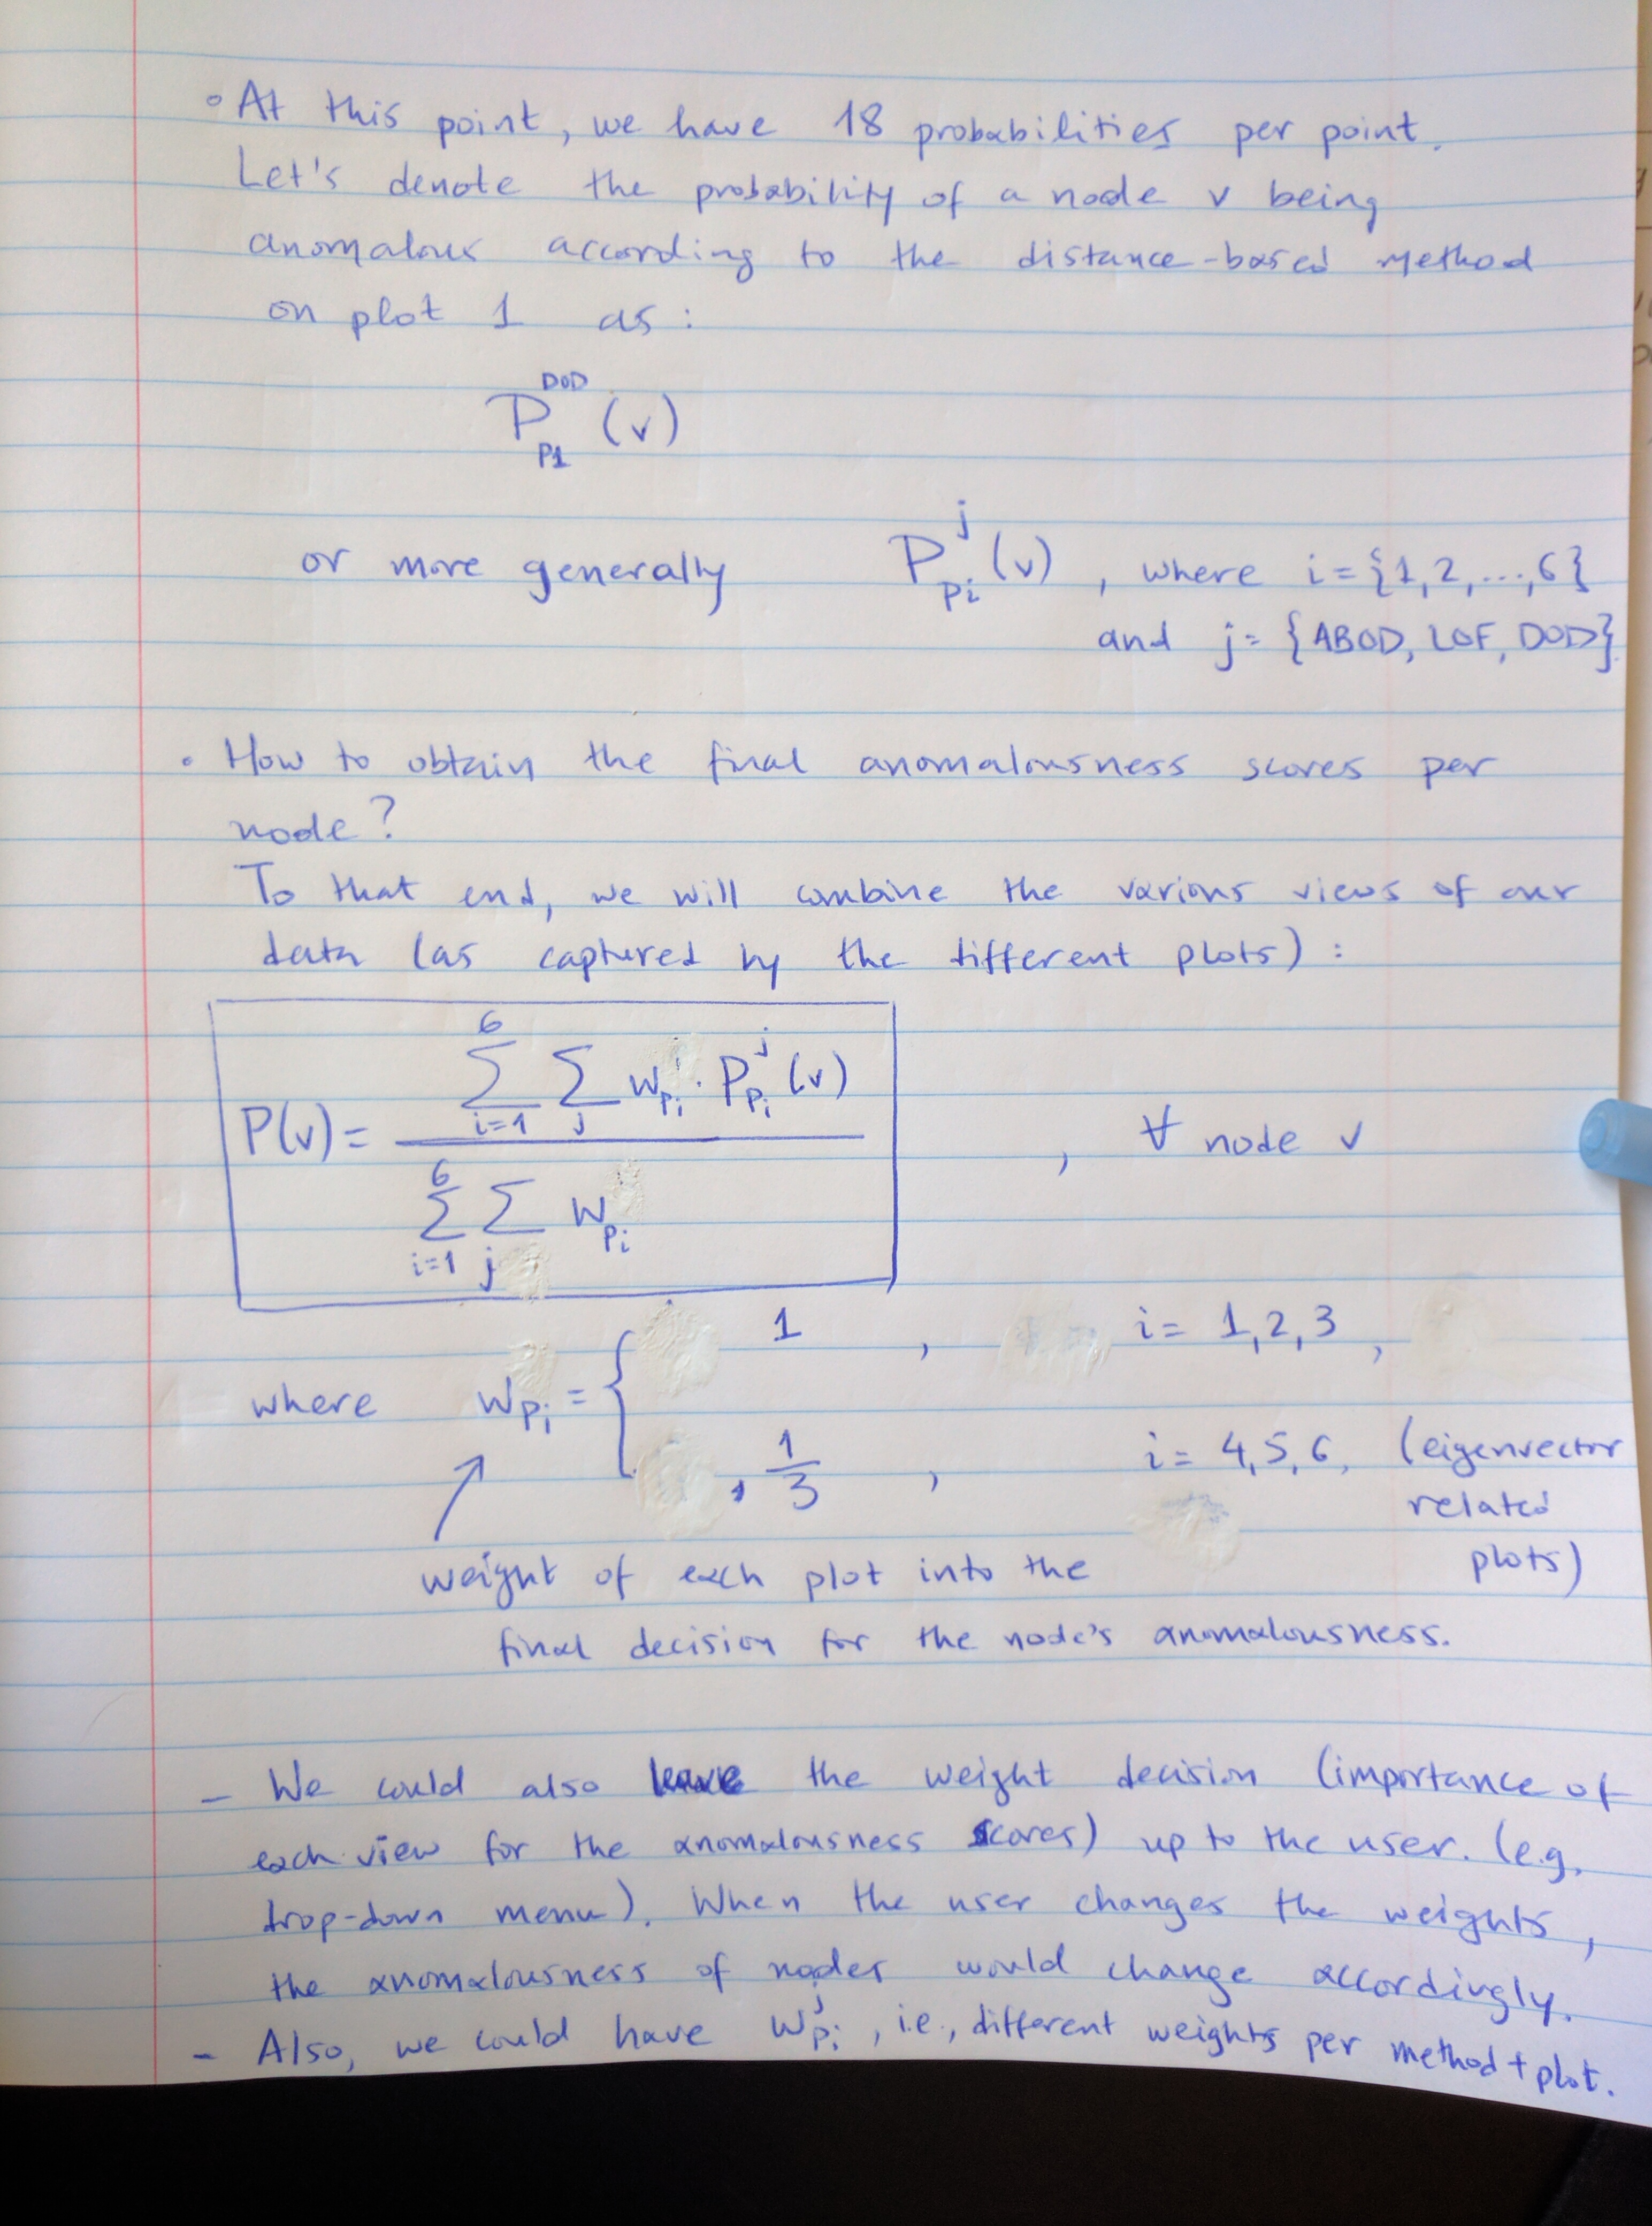 ∘ At this point, we have 18 probabilities per point.
Let's denote the probability of a node v being
anomalous according to the distance-based method
on plot 1 as:
P_{P1}^{DOD} (v)
or more generally P_{Pi}^{j} (v) , where i={1,2,...,6}
and j= {ABOD, LOF, DOD}.
• How to obtain the final anomalousness scores per
node?
To that end, we will combine the various views of our
data (as captured by the different plots) :
P(v) = \frac{\sum_{i=1}^{6} \sum_{j} w_{Pi} \cdot P_{Pi}^{j} (v)}{\sum_{i=1}^{6} \sum_{j} w_{Pi}} , ∀ node v
1 , i= 1,2,3 ,
where w_{Pi} = {
1/3 , i= 4,5,6, (eigenvector
related
plots)
weight of each plot into the
final decision for the node's anomalousness.
– We could also leave the weight decision (importance of
each view for the anomalousness scores) up to the user. (e.g.
drop-down menu). When the user changes the weights,
the anomalousness of nodes would change accordingly.
– Also, we could have w_{Pi}^{j} , i.e., different weights per method + plot.